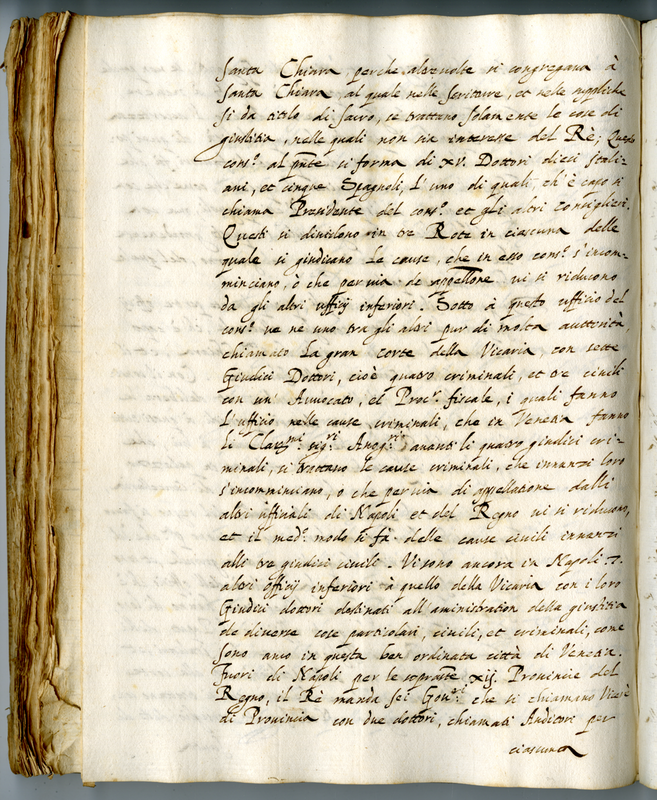 Santa Chiara, perche alle volte si congregava à
Santa Chiara al quale nelle scritture, et nelle suppliche
si da titolo di Sacro, ce trattano solamente le cose di
giustitia, nelle quali non sia interesse del Rè; Questo
cons.º al pñte si forma di XV. Dottori dieci Itali-
ani, et cinque Spagnoli, L'uno di quali, ch'è capo si
chiama Presidente del cons.º et gli altri Consiglieri.
Questi si dividono in tre Rote in ciascuna delle
quale si giudicano le cause, che in esso cons.º s'incom-
minciano, ò che per via de appellone vi si riducono
da gli altri ufficij inferiori. Sotto à questo ufficio del
cons.º ve ne uno tra gli altri pur di molta auttorità
chiamato La gran corte della Vicaria, con sette
Giudici Dottori, cioè quatro criminali, et tre civili
con un' Avvocato, el Proc.r fiscale, i quali fanno
L'ufficio nelle cause criminali, che in Venetia fanno
li Clar.mi sig.ri Avog.ri avanti li quatro giudici cri-
minali, si trattano le cause criminali, che innanzi loro
s'incomminciano, o che per via di appellatione dalli
altri ufficiali di Napoli et del Regno vi si riducono,
et il med.º modo si fà delle cause civili innanzi
alli tre giudici civili. Vi sono ancora in Napoli .7.
altri officij inferiori à quello della Vicaria con i loro
Giudici dottori destinati all'aministration della giustitia
de diverse cose particolari, civili, et criminali, come
sono anco in questa ben ordinata città di Venetia.
Fuori di Napoli per le sopradte xij. Provincie del
Regno, il Rè manda sei Gov.ri che si chiamano Vicerè
di Provincia con due dottori, chiamati Auditori per
ciascuna